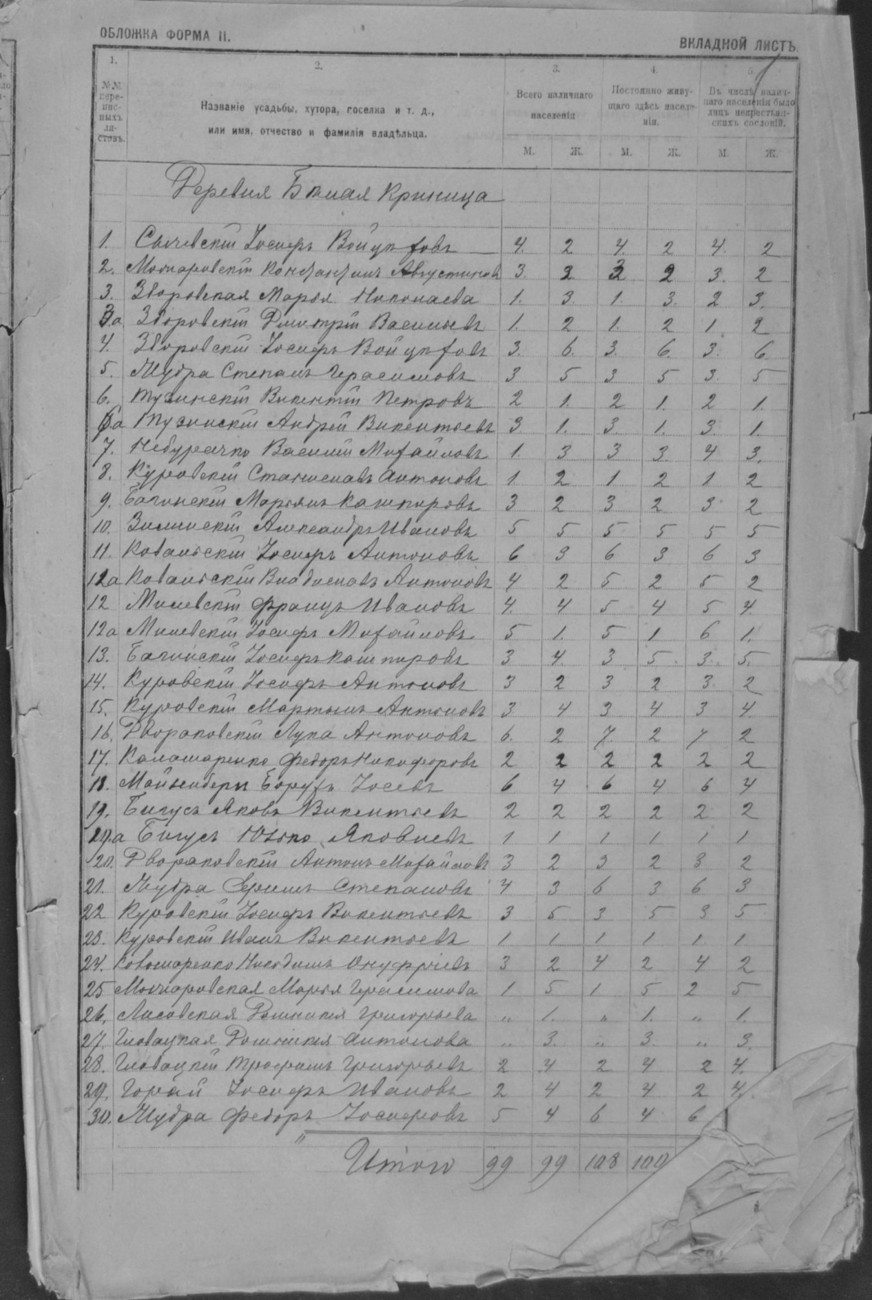 ОБЛОЖКА ФОРМА II.
ВКЛАДНОЙ ЛИСТЪ
1. 2. 3. 4.
№№ пере-пис-ныхъ ли-стовъ.
Названіе усадьбы, хутора, поселка и т. д.,
или имя, отчество и фамилія владѣльца.
Всего наличнаго населенія
Постоянно живу-щаго здѣсь населе-нія.
Въ числѣ налич-наго населенія было лицъ некрестьян-скихъ сословій.
М. Ж. М. Ж. М. Ж.
Деревня Бѣлая Криница
1. Сычевскій Іосифъ Войцеховъ 4. 2 4. 2 4. 2
2. Константинъ Августиновъ 3. 2 3 2 3. 2
3. Зворовская Марья Николаева 1. 3. 1. 3. 2 3.
3а Зворовскій Дмитрій Васильевъ 1. 2 1. 2 1. 2
4. Зворовскій Іосифъ Войцеховъ 3. 6. 3. 6. 3. 6.
5. Мудра Степанъ Герасимовъ 3 5 3 5 3. 5
6. Тузинскій Викентій Петровъ 2 1. 2 1. 2 1.
6а Тузинскій Андрей Викентьевъ 3 1. 3. 1. 3. 1.
7. Василій Михайловъ 1. 3 3 3 4 3.
8. Куровскій Станиславъ Антоновъ 1 2 1 2 1 2
9. Багинскій Марьянъ Кашпировъ 3 2 3 2 3 2
10. Зилинскій Александръ Ивановъ 5 5 5 5 5 5
11. Ковальскій Іосифъ Антоновъ 6 3 6 3 6 3
11а Ковальскій Владиславъ Антоновъ 4 2 5 2 5 2
12 Милевскій Францъ Ивановъ 4 4 5 4 5 4.
12а Милевскій Іосифъ Михайловъ 5 1. 5 1 6 1.
13. Багинскій Іосифъ Кашпировъ 3 4. 3 5 3. 5.
14. Куровскій Іосифъ Антоновъ 3 2 3 2 3. 2
15. Куровскій Мартынъ Антоновъ 3 4 3 4 3 4.
16. Двораковскій Лука Антоновъ 6. 2 7 2 7 2
17. Федоръ Никифоровъ 2 2 2 2 2 2
18. Борухъ Іосевъ 6 4 6 4 6 4
19. Бигусъ Яковъ Викентьевъ 2 2 2 2 2 2
19.а Бигусъ Яковлевъ 1 1 1 1 1 1
20. Двораковскій Антонъ Михайловъ 3 2 3 2 3 2
21. Мудра Степановъ 4 3 6 3 6 3
22 Куровскій Іосифъ Викентьевъ 3 5 3 5 3 5
23. Куровскій Иванъ Викентьевъ 1 1 1 1 1. 1
24. Никодимъ Онуфріевъ 3 2 4 2 4 2
25 Марья Герасимова 1 5 1 5 2 5
26. Лисовская Доминика Григорьева „ 1. „ 1. „ 1.
27. Гловацкая Доминика Антонова „ 3. „ 3 „ 3.
28. Гловацкій Трофимъ Григорьевъ 2 4 2 4 2 4.
29. Горай Іосифъ Ивановъ 2 4 2 4 2 4.
30. Мудра Федоръ Іосифовъ 5 4 6 4 6
Итого 99 99 108 100